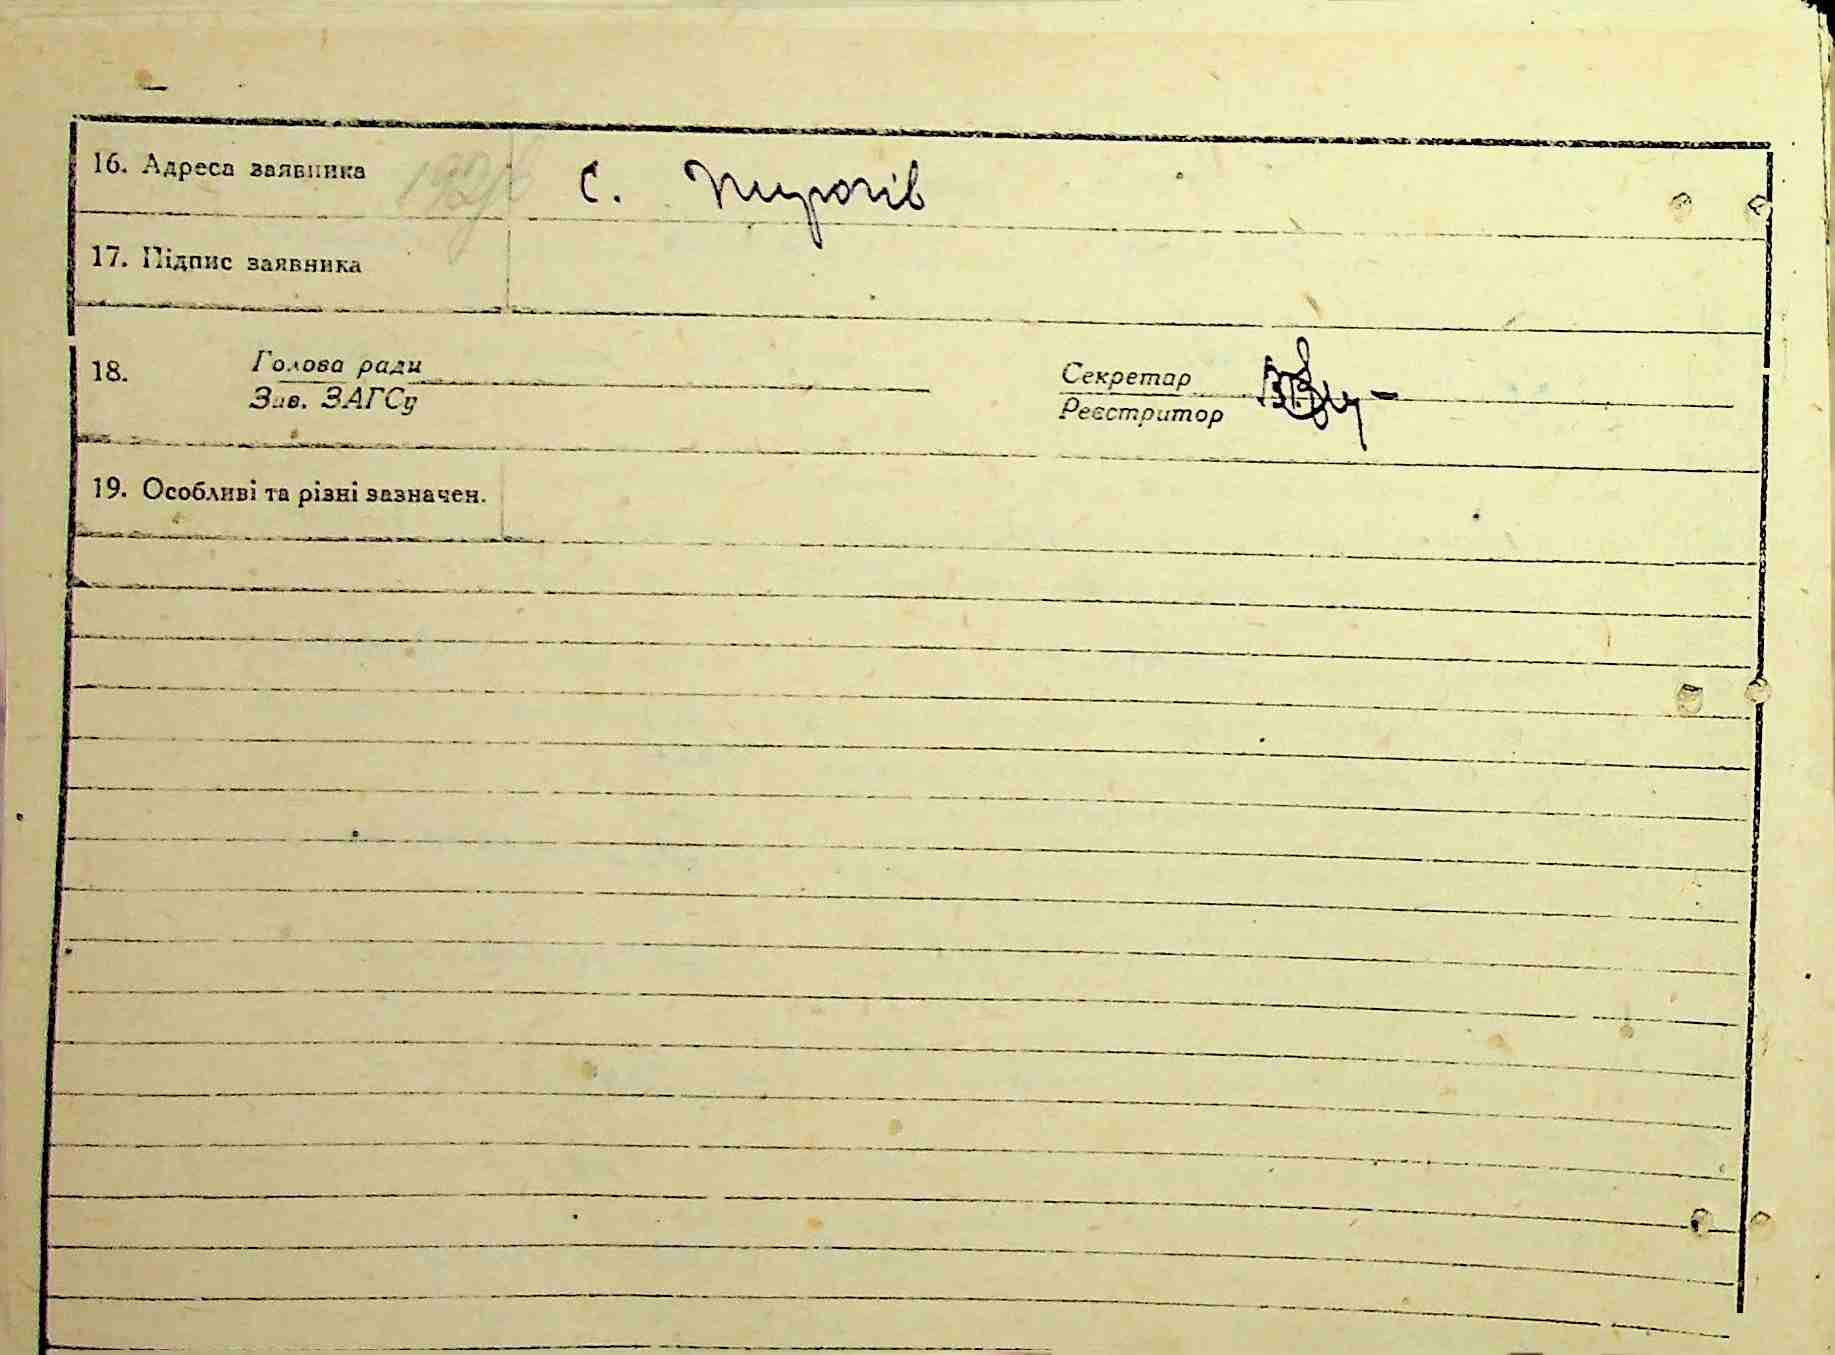 16. Адреса заявника с. Пирогів
17. Підпис заявника
18. Голова ради Секретар
Зав. ЗАГСу Реєстритор
19. Особливі та різні зазначен.